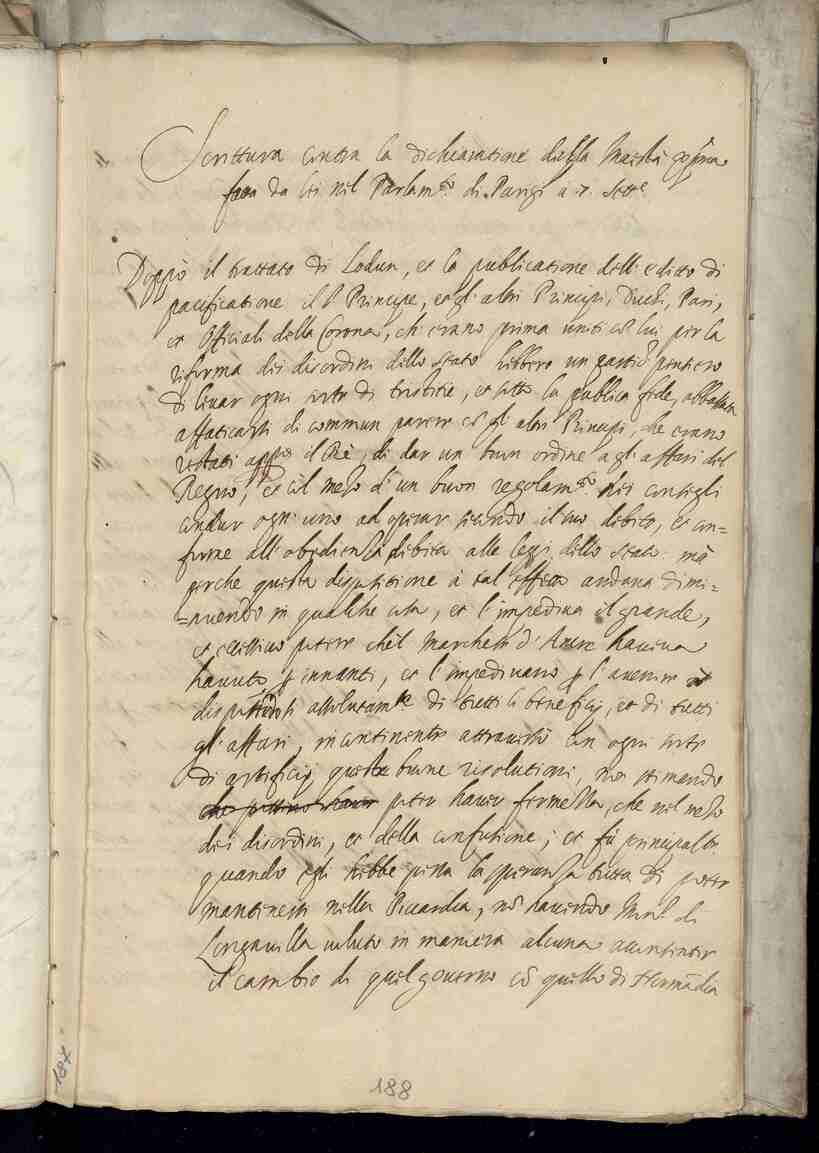 Scrittura contra la dichiaratione della Maestà
fatta da lei nel Parlam.to di Parigi a 7. Sett.e
Doppò il trattato di Lodun, et la publicatione dell'editto di
pacificatione il Principe, et gl'altri Principi, Duchi, Pari,
et Officiali della Corona, ch'erano prima uniti cō lui per la
riforma dei disordini dello stato hebbero un pensiero
di levar ogni sorte di tristitie, et sotto la publica fede,
affaticarsi di commun parere cō gl'altri Principi, che erano
restati app.o il Rè, di dar un buon ordine agl'affari del
Regno, et col mezo d'un buon regolam.to nei consigli
condur ogn'uno ad operar secondo il suo debito, et con=
forme all'obedienza debita alle leggi dello stato. mà
perche questa dispositione à tal'effetto andava dimi=
=nuendo in qualche cosa, et l'impediva il grande,
et eccessivo potere che'l Marchese d'Ancre haveva
havuto p innanti, et l'impedivano p l'avenire
assolutam.te di tutti li beneficij, et di tutti
gl'affari, incontinente attraversò con ogni sorte
di artificij queste buone risolutioni, non stimando
poter haver fermezza, che nel mezo
dei disordini, et della confusione; et fù principalte.
quando egli hebbe persa la speranza tutta di poter
mantenersi nella Piccardia, nō havendo Mons.r di
Longavilla voluto in maniera alcuna acconsentir
il cambio di quel governo cō quello di Normādia
187
188